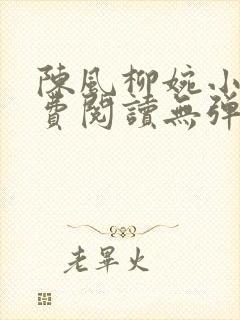 陳風柳婉小
費閱讀無彈
老畢火